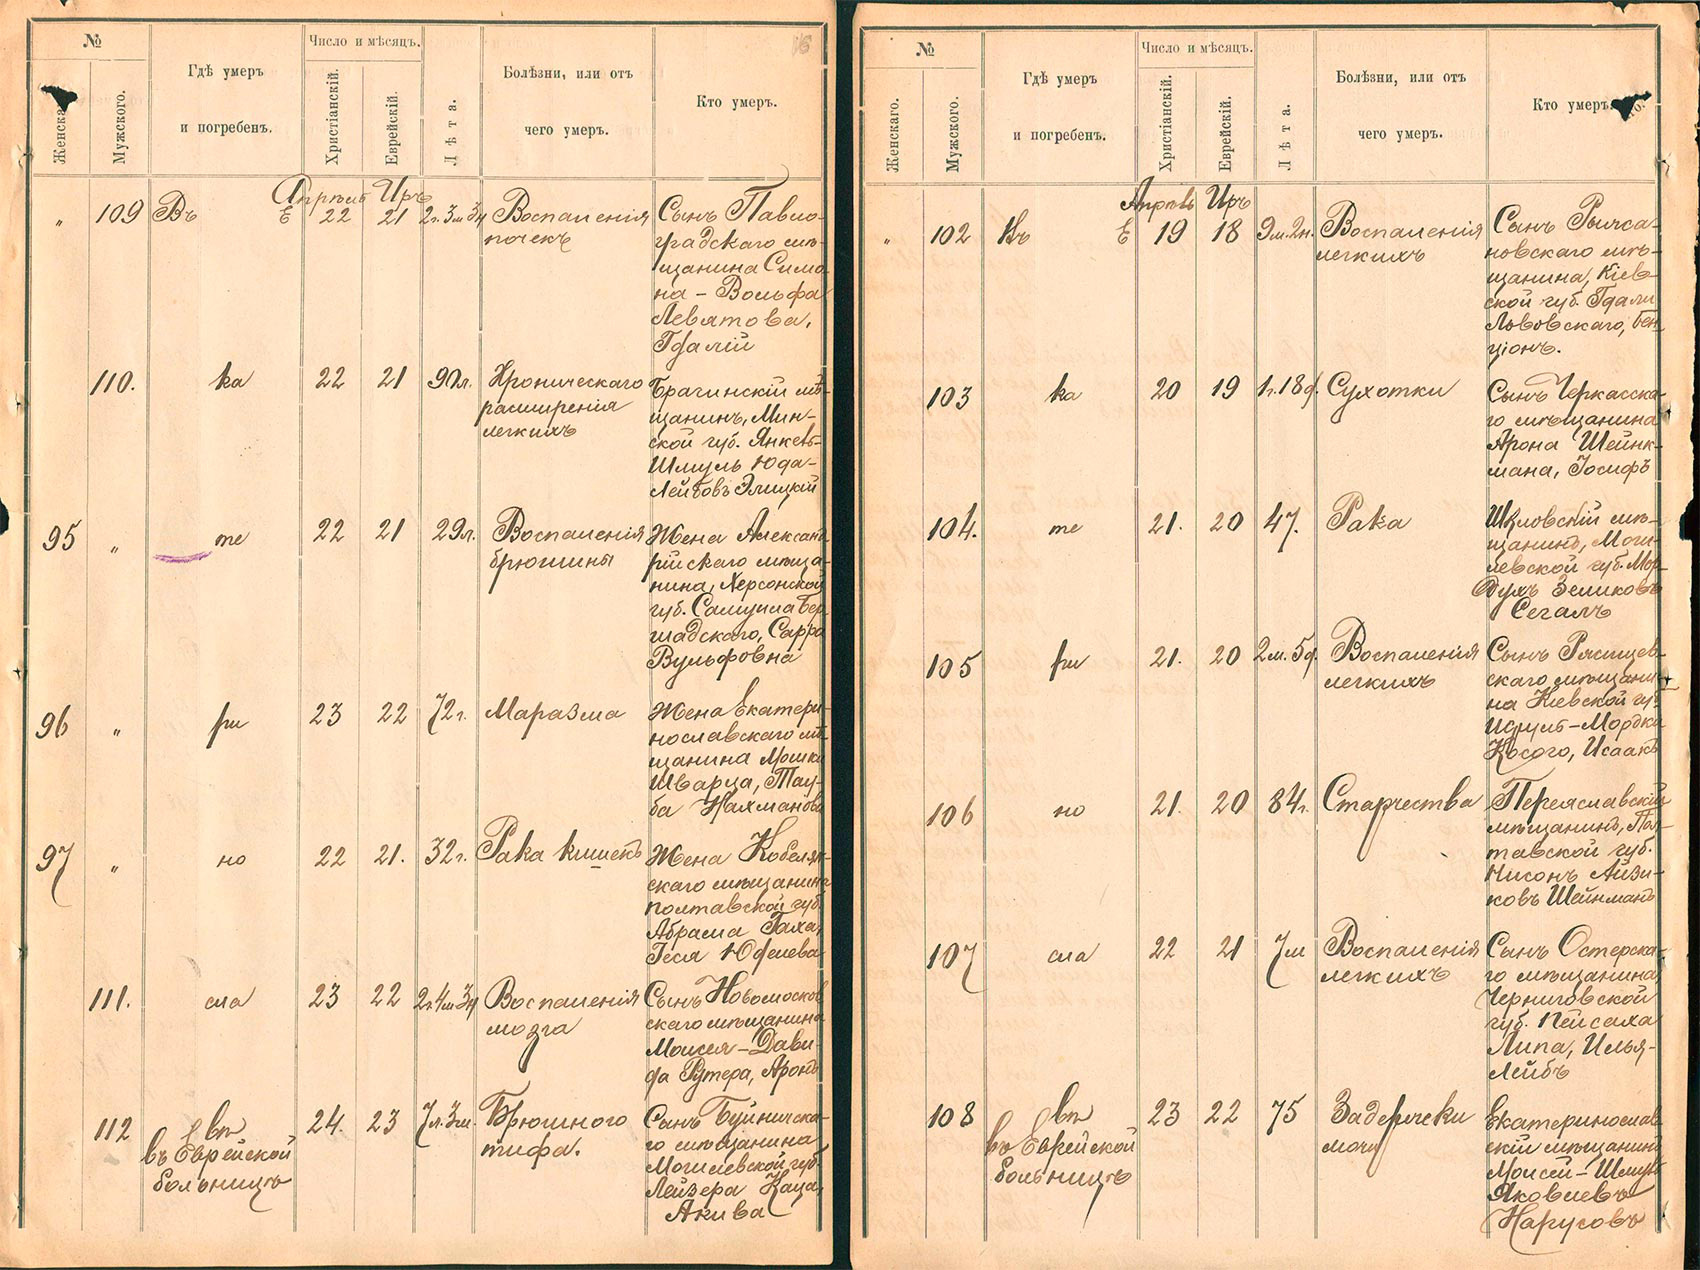 №
Женскаго.
Мужского.
Гдѣ умеръ
и погребенъ.
Число и мѣсяцъ.
Христіанскій.
Еврейскій.
Лѣта.
Болѣзни, или отъ
чего умеръ.
Кто умеръ.
16
Апрѣль Иръ
" 109 Въ Е 22 21 2г.3м.3д Воспаленія
почекъ
Сынъ Павло-
градскаго мѣ-
щанина Симо-
на - Вольфа
Левятова,
Гдалій
110. ка 22 21 90л. Хроническаго
расширенія
легкихъ
Брагинскій мѣ-
щанинъ, Мин-
ской губ. Янкель-
Шмуль Юда-
Лейбовъ Элицкій
95 " те 22 21 29л. Воспаленія
брюшины
Жена Александ-
рійскаго мѣща-
нина, Херсонской
губ. Самуила Бер-
шадскаго, Сарра
Вульфовна
96 " ри 23 22 72г. Маразма
Жена Екатери-
нославскаго мѣ-
щанина Мошки
Шварца, Тау-
ба Нахманова
97 " но 22 21. 32г. Рака кишекъ
Жена Кобеляк-
скаго мѣщанина
Полтавской губ.
Абрама Гаха,
Геся Юделева
111. сла 23 22 2г.4м.3д Воспаленія
мозга
Сынъ Новомосков-
скаго мѣщанина
Моисея - Дави-
да Рутера, Аронъ
112 влѣ
въ Еврейской
больницѣ
24. 23 7л.3м. Брюшного
тифа.
Сынъ Буйничска-
го мѣщанина
Могилевской губ.
Лейзера Каца,
Акива
№
Женскаго.
Мужского.
Гдѣ умеръ
и погребенъ.
Число и мѣсяцъ.
Христіанскій.
Еврейскій.
Лѣта.
Болѣзни, или отъ
чего умеръ.
Кто умеръ.
Апрѣль Иръ
" 102 Въ Е 19 18 9м.2н. Воспаленія
легкихъ
Сынъ
новскаго мѣ-
щанина, Кіев-
ской губ. Гдали
Львовскаго, Бен-
ціонъ.
103 ка 20 19 1г.18д. Сухотки
Сынъ Черкасска-
го мѣщанина
Арона Шейнк-
мана, Іосифъ
104. те 21. 20 47. Рака
Шкловскій мѣ-
щанинъ, Моги-
левской губ. Мор-
духъ Зеликовъ
Сегалъ
105 ри 21. 20 2м.5д. Воспаленія
легкихъ
Сынъ Ржищев-
скаго мѣщани-
на Кіевской гу.
Сруль - Мордки
Косого, Исаакъ
106 но 21. 20 84г. Старчества
Переяславскій
мѣщанинъ, Пол-
тавской губ.
Нисонъ Айзи-
ковъ Шейнманъ
107 сла 22 21 7м Воспаленія
легкихъ
Сынъ Остерска-
го мѣщанина,
Черниговской
губ. Пейсаха
Липа, Илья-
Лейбъ
108 влѣ
въ Еврейской
больницѣ
23 22 75 Задержки
мочи
Екатеринослав-
скій мѣщанинъ
Моисей - Шмуль
Яковлевъ
Нарусовъ